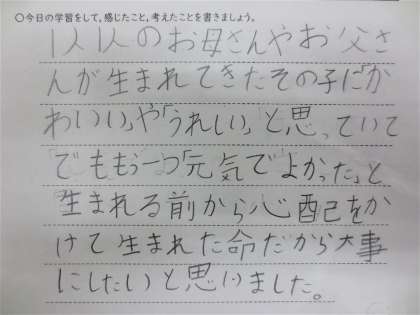 ○今日の学習をして,感じたこと,考えたことを書きましょう。
1人1人のお母さんやお父さ
んが生まれてきたその子に「か
わいい」や「うれしい」と思っていて
でももう一つ「元気でよかった」と
生まれる前から心配をか
けて生まれた命だから大事
にしたいと思いました。